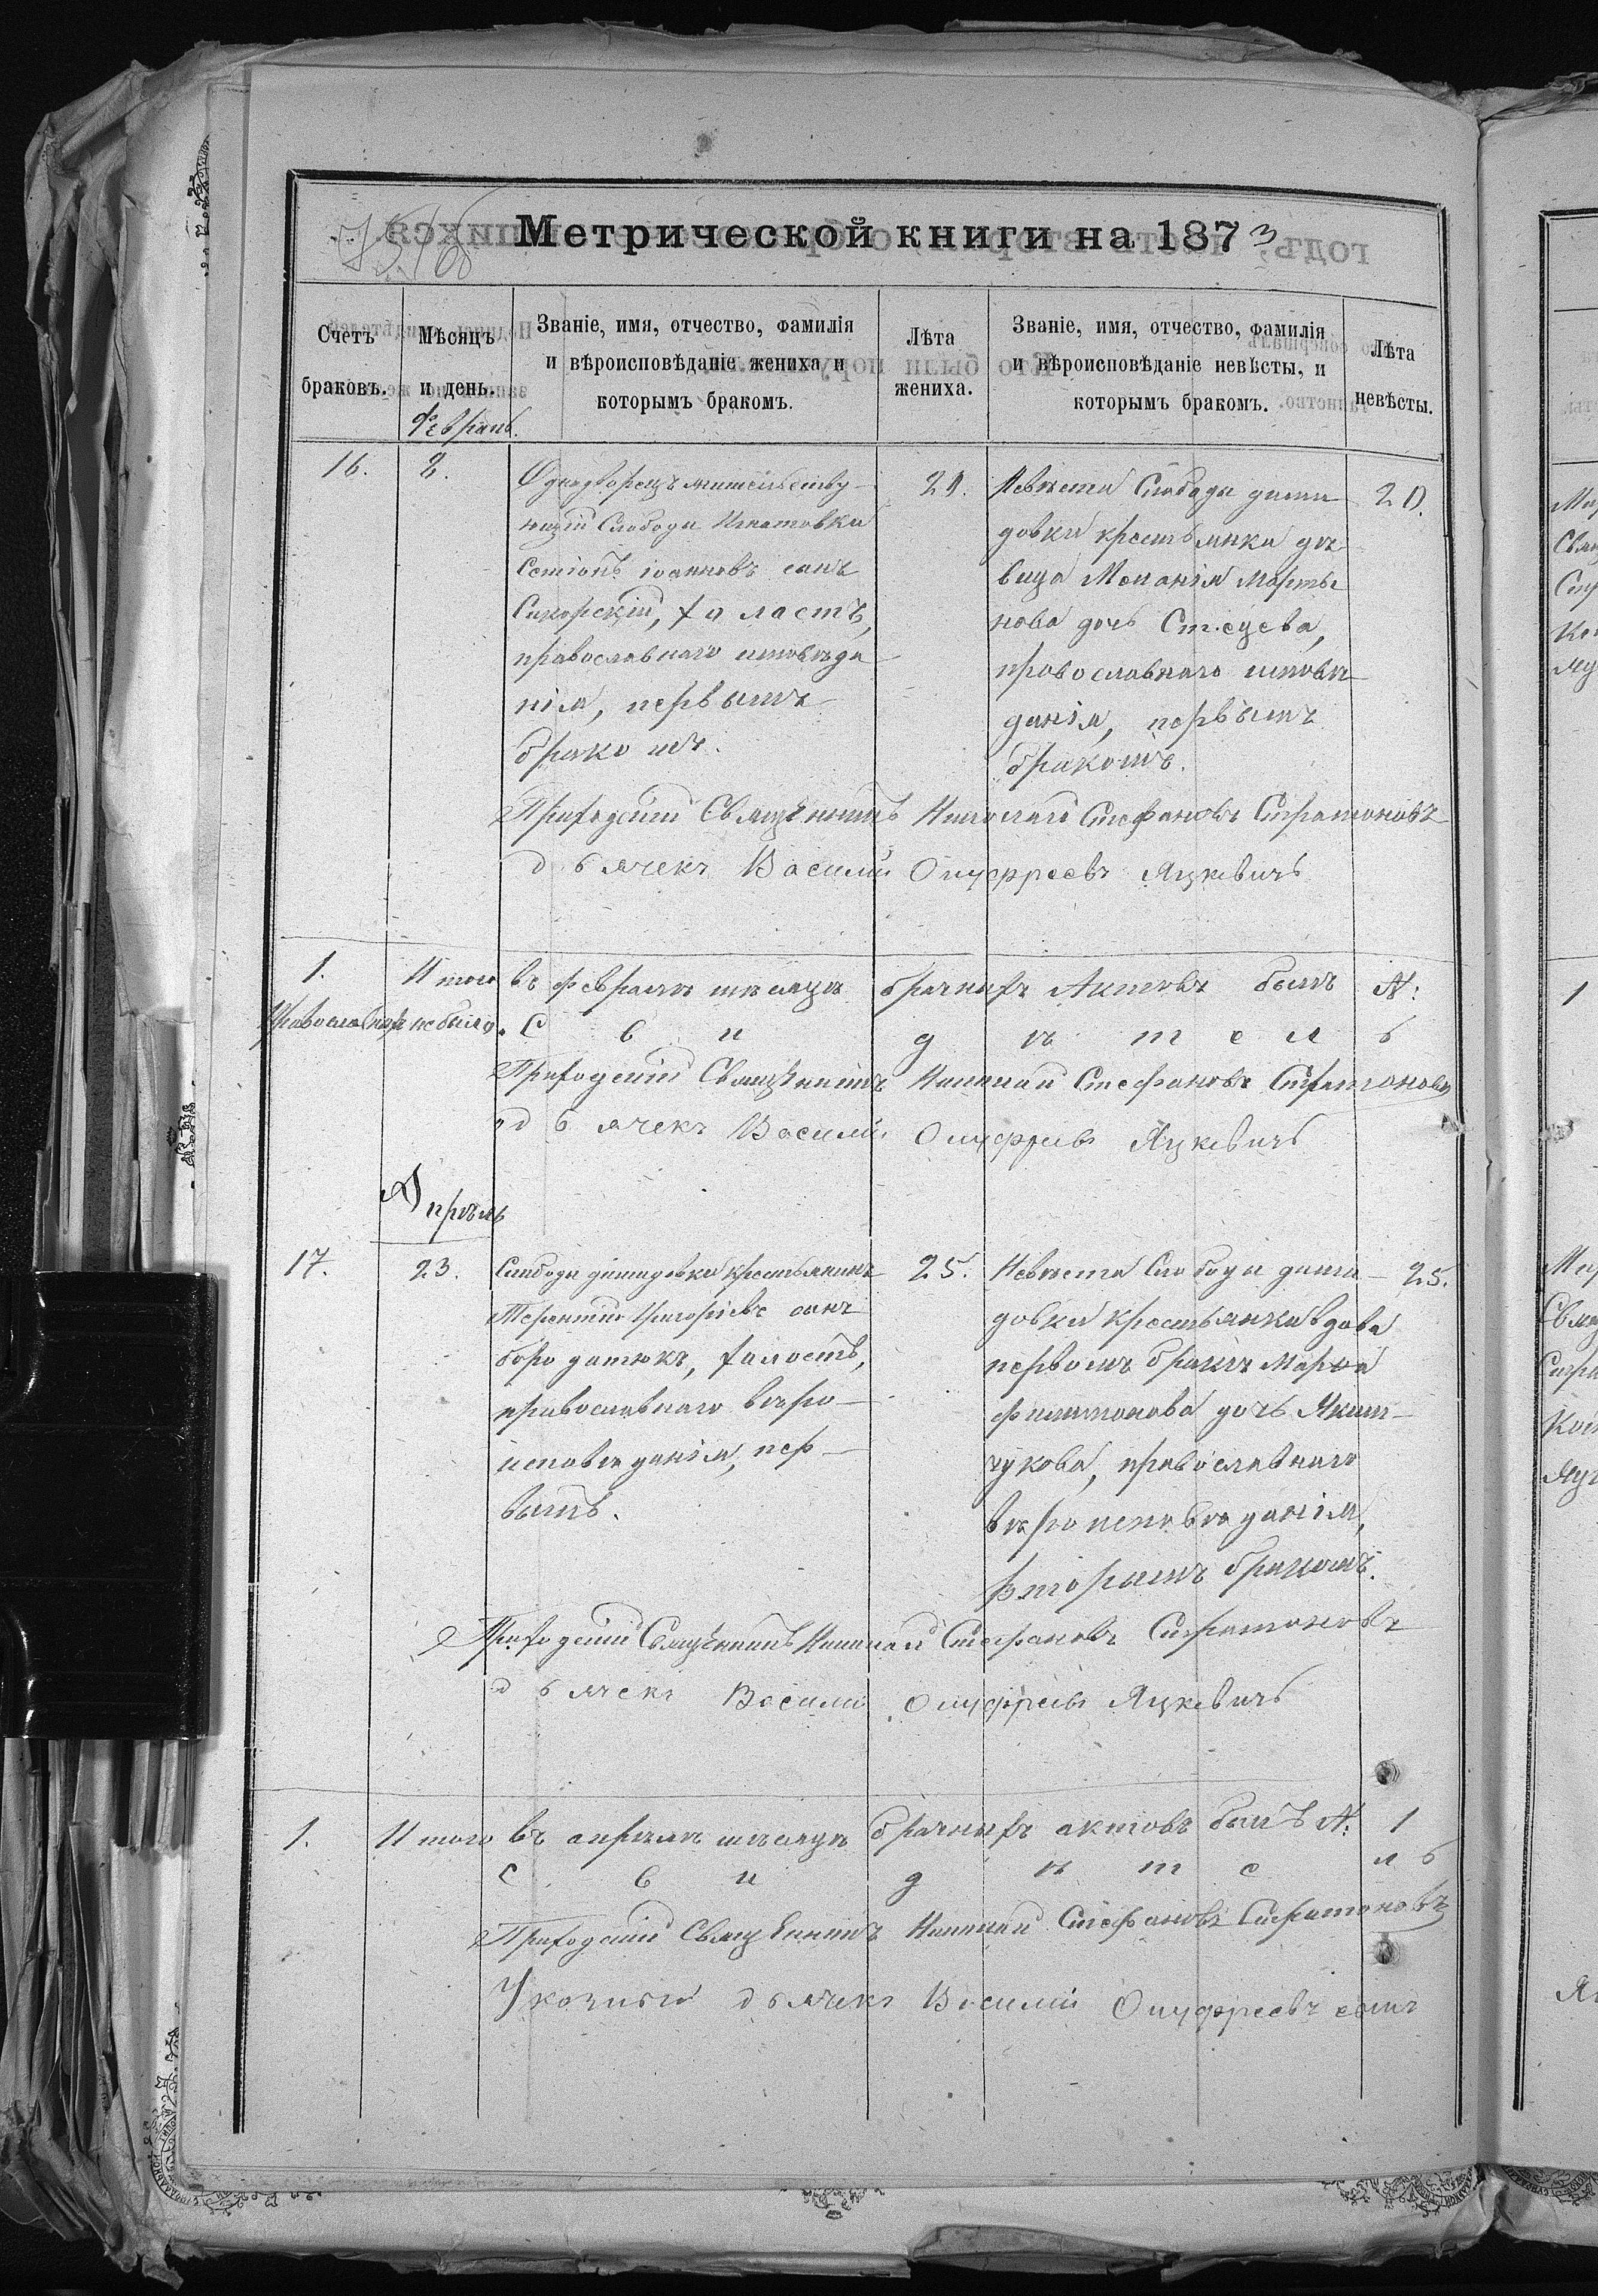 Метрической книги на 1873
Счетъ браковъ.
Мѣсяцъ и день.
Званіе, имя, отчество, фамилія
и вѣроисповѣданіе жениха и
которымъ бракомъ.
Лѣта жениха.
Званіе, имя, отчество, фамилія
и вѣроисповѣданіе невѣсты, и
которымъ бракомъ.
Лѣта невѣсты.
Февраль.
16.
2.
Однодворецъ жительству-
ющій Слободи Игнатовки
іоанновъ сынъ
Сикорскій, холостъ,
православнаго исповѣда
нія, первымъ
бракомъ.
21.
Невѣста Слободи дими
довки крестьянка дѣ-
вица Меланія Марты
нова дочь Стецева,
православнаго исповѣ-
данія, первымъ
бракомъ.
20.
Приходскій Священникъ Николай Стефановъ Стратоновъ
дьячекъ Василій Онуфріевъ Яцкевичъ
1. Итого въ февралѣ мѣсяцѣ брачныхъ Актовъ былъ №:
не было. С в и д ѣ т е л ь
Приходскій Священникъ Николай Стефановъ Стратоновъ
дьячекъ Василій Онуфріевъ Яцкевичъ
Апрѣль
17.
23.
Слободи димидовки крестьянинъ
Терентій Григоріевъ сынъ
бородатюкъ, холостъ,
православнаго вѣро-
исповѣданія, пер-
вымъ.
25.
Невѣста Слободи дими-
довки крестьянка вдова
первомъ бракѣ Марфа
филимонова дочь Яким-
чукова, православнаго
вѣроисповѣданія,
вторымъ бракомъ.
25.
Приходскій Священникъ Николай Стефановъ Стратоновъ
дьячекъ Василій Онуфріевъ Яцкевичъ
1. Итого въ апрѣлѣ мѣсяцѣ брачныхъ актовъ былъ №: 1
с в и д ѣ т е л ь
Приходскій Священникъ Николай Стефановъ Стратоновъ
Указный дьячекъ Василій Онуфріевъ сынъ